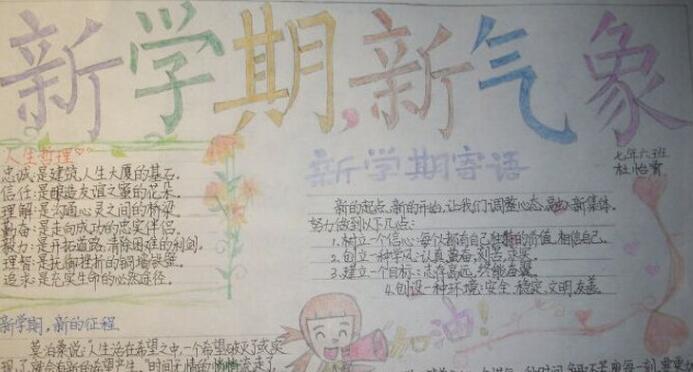 新学期,新气象
人生哲理
忠诚是建筑人生大厦的基石。
信任:是酿造友谊之蜜的花朵
理解:是沟通心灵之间的桥梁
勤奋:是走向成功的忠实伴侣。
毅力:是开拓道路,清除困难的利剑。
理智:是抵御挫折的铜墙铁壁。
追求:是充实生命的必然途径。
新学期寄语
七年六班
杜怡
新的起点,新的开始,让我们调整心态,融入新集体。
努力做到以下几点:
1.树立一个信心:每个人都有自己独特的价值,相信自己。
2.创立一种学风:认真,勤奋,刻苦,求实。
3.建立一个目标:志存高远,
4.创设一种环境:安全,稳定,文明,友善。
新学期,新的征程
加油!
莫泊桑说:"人生活在希望之中,一个希望破灭了或实
现了,就会有新的希望产生。"时间无情的悄悄流走了